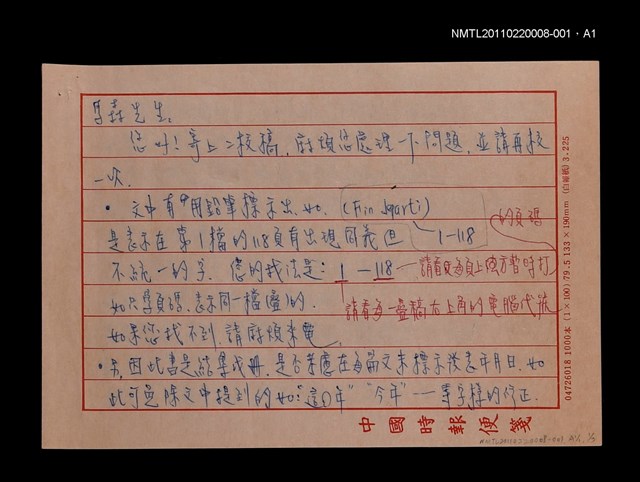 NMTL20110220008-001・A1
先生:
您好!寄上二校稿,麻煩您處理一下問題,並請再校
一次.
• 文中有用鉛筆標示出,如.(Fin
1-118 的頁碼
是表示在第1檔的118頁有出現同義但
不統一的字.您的找法是:1 — 118 — 請看文每頁上
如只, 表示同一檔
請看每一疊稿右上角的電腦代號
如果您找不到,請麻煩來電.
• 另,因此書是結集成冊,是否考慮在每篇文末標示發表年月日,如
此可免除文中提到的如:"這0年""今年"一等字樣的修正.
中國時報便箋
04726018 1000本 (1×100) 79.5 133×190mm (白報紙) 3.225